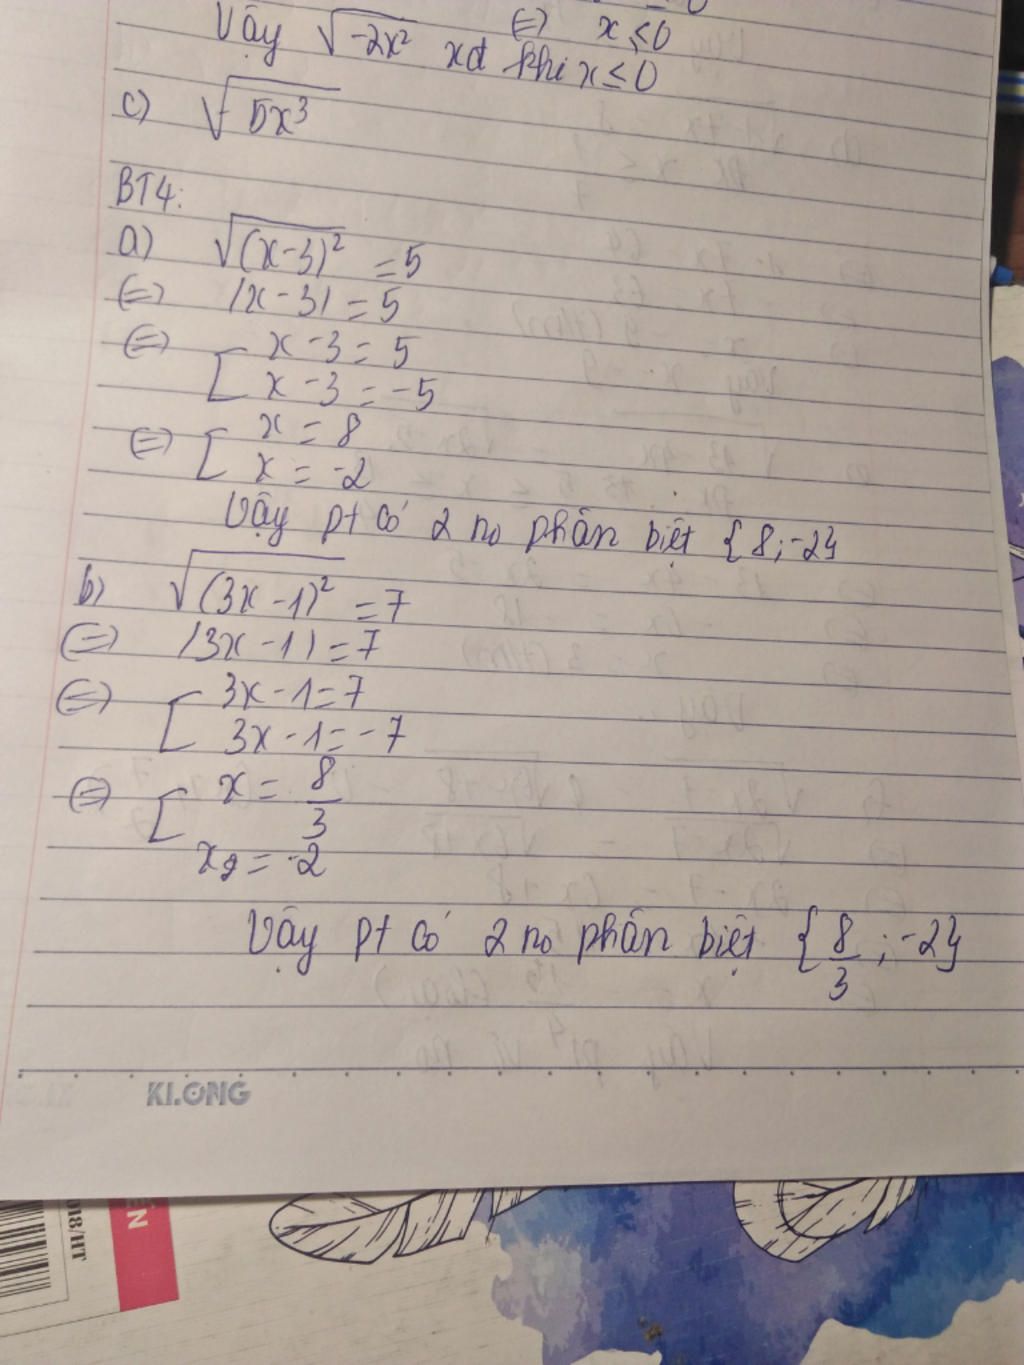 (=) x ≤ 0
Vậy √-2x² xđ khi x ≤ 0
c) √5x³
BT4:
a) √(x-3)² = 5
(=) |x-3| = 5
(=) [ x-3 = 5
x-3 = -5
(=) [ x = 8
x = -2
Vậy pt có 2 no phân biệt {8;-2}
b) √(3x-1)² = 7
(=) |3x-1| = 7
(=) [ 3x-1=7
3x-1=-7
(=) [ x = 8/3
x₂ = -2
Vậy pt có 2 no phân biệt {8/3;-2}
KLONG
2018/HT